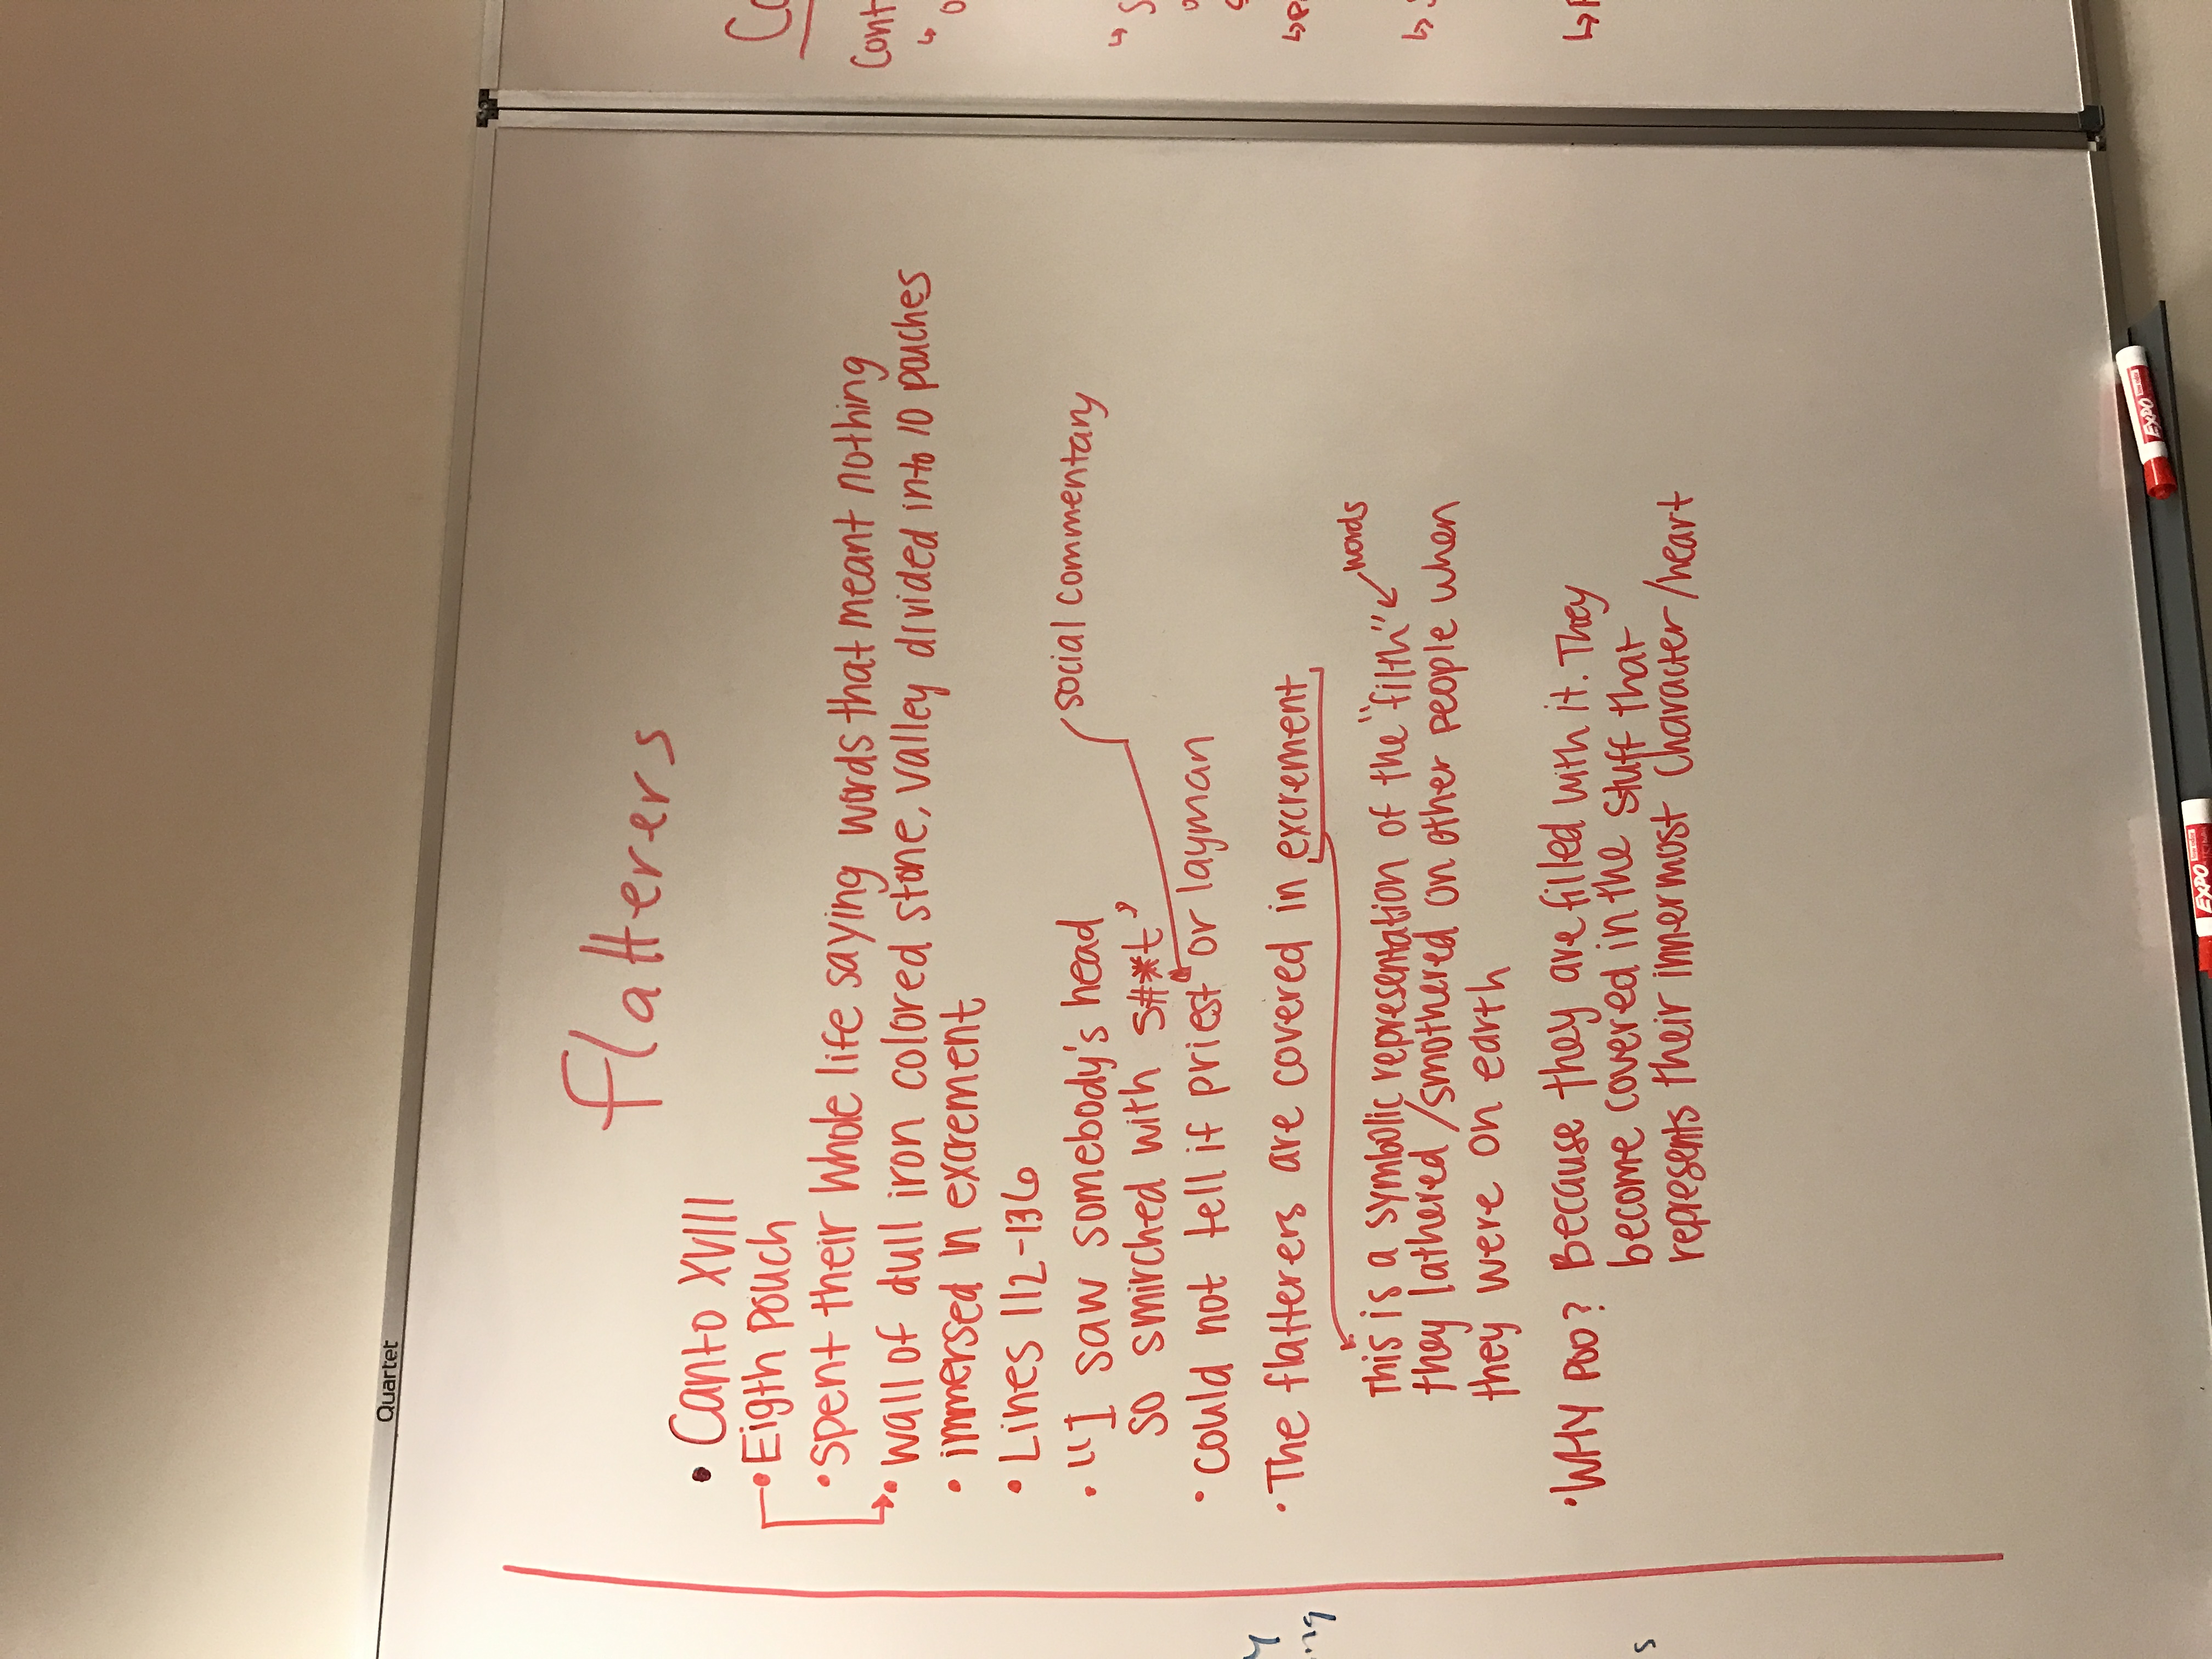 Quartet
Flatterers
• Canto XVIII
• Eigth pouch
• Spent their whole life saying words that meant nothing
• wall of dull iron colored stone, valley divided into 10 pouches
• immersed in excrement
• Lines 112-136
• "I saw somebody's head
so smirched with s#*t"
social commentary
• could not tell if priest or layman
• The flatterers are covered in excrement
words
This is a symbolic representation of the "filth"
they lathered/smothered on other people when
they were on earth
• WHY POO? Because they are filled with it. They
become covered in the stuff that
represents their innermost character/heart
EXPO
EXPO